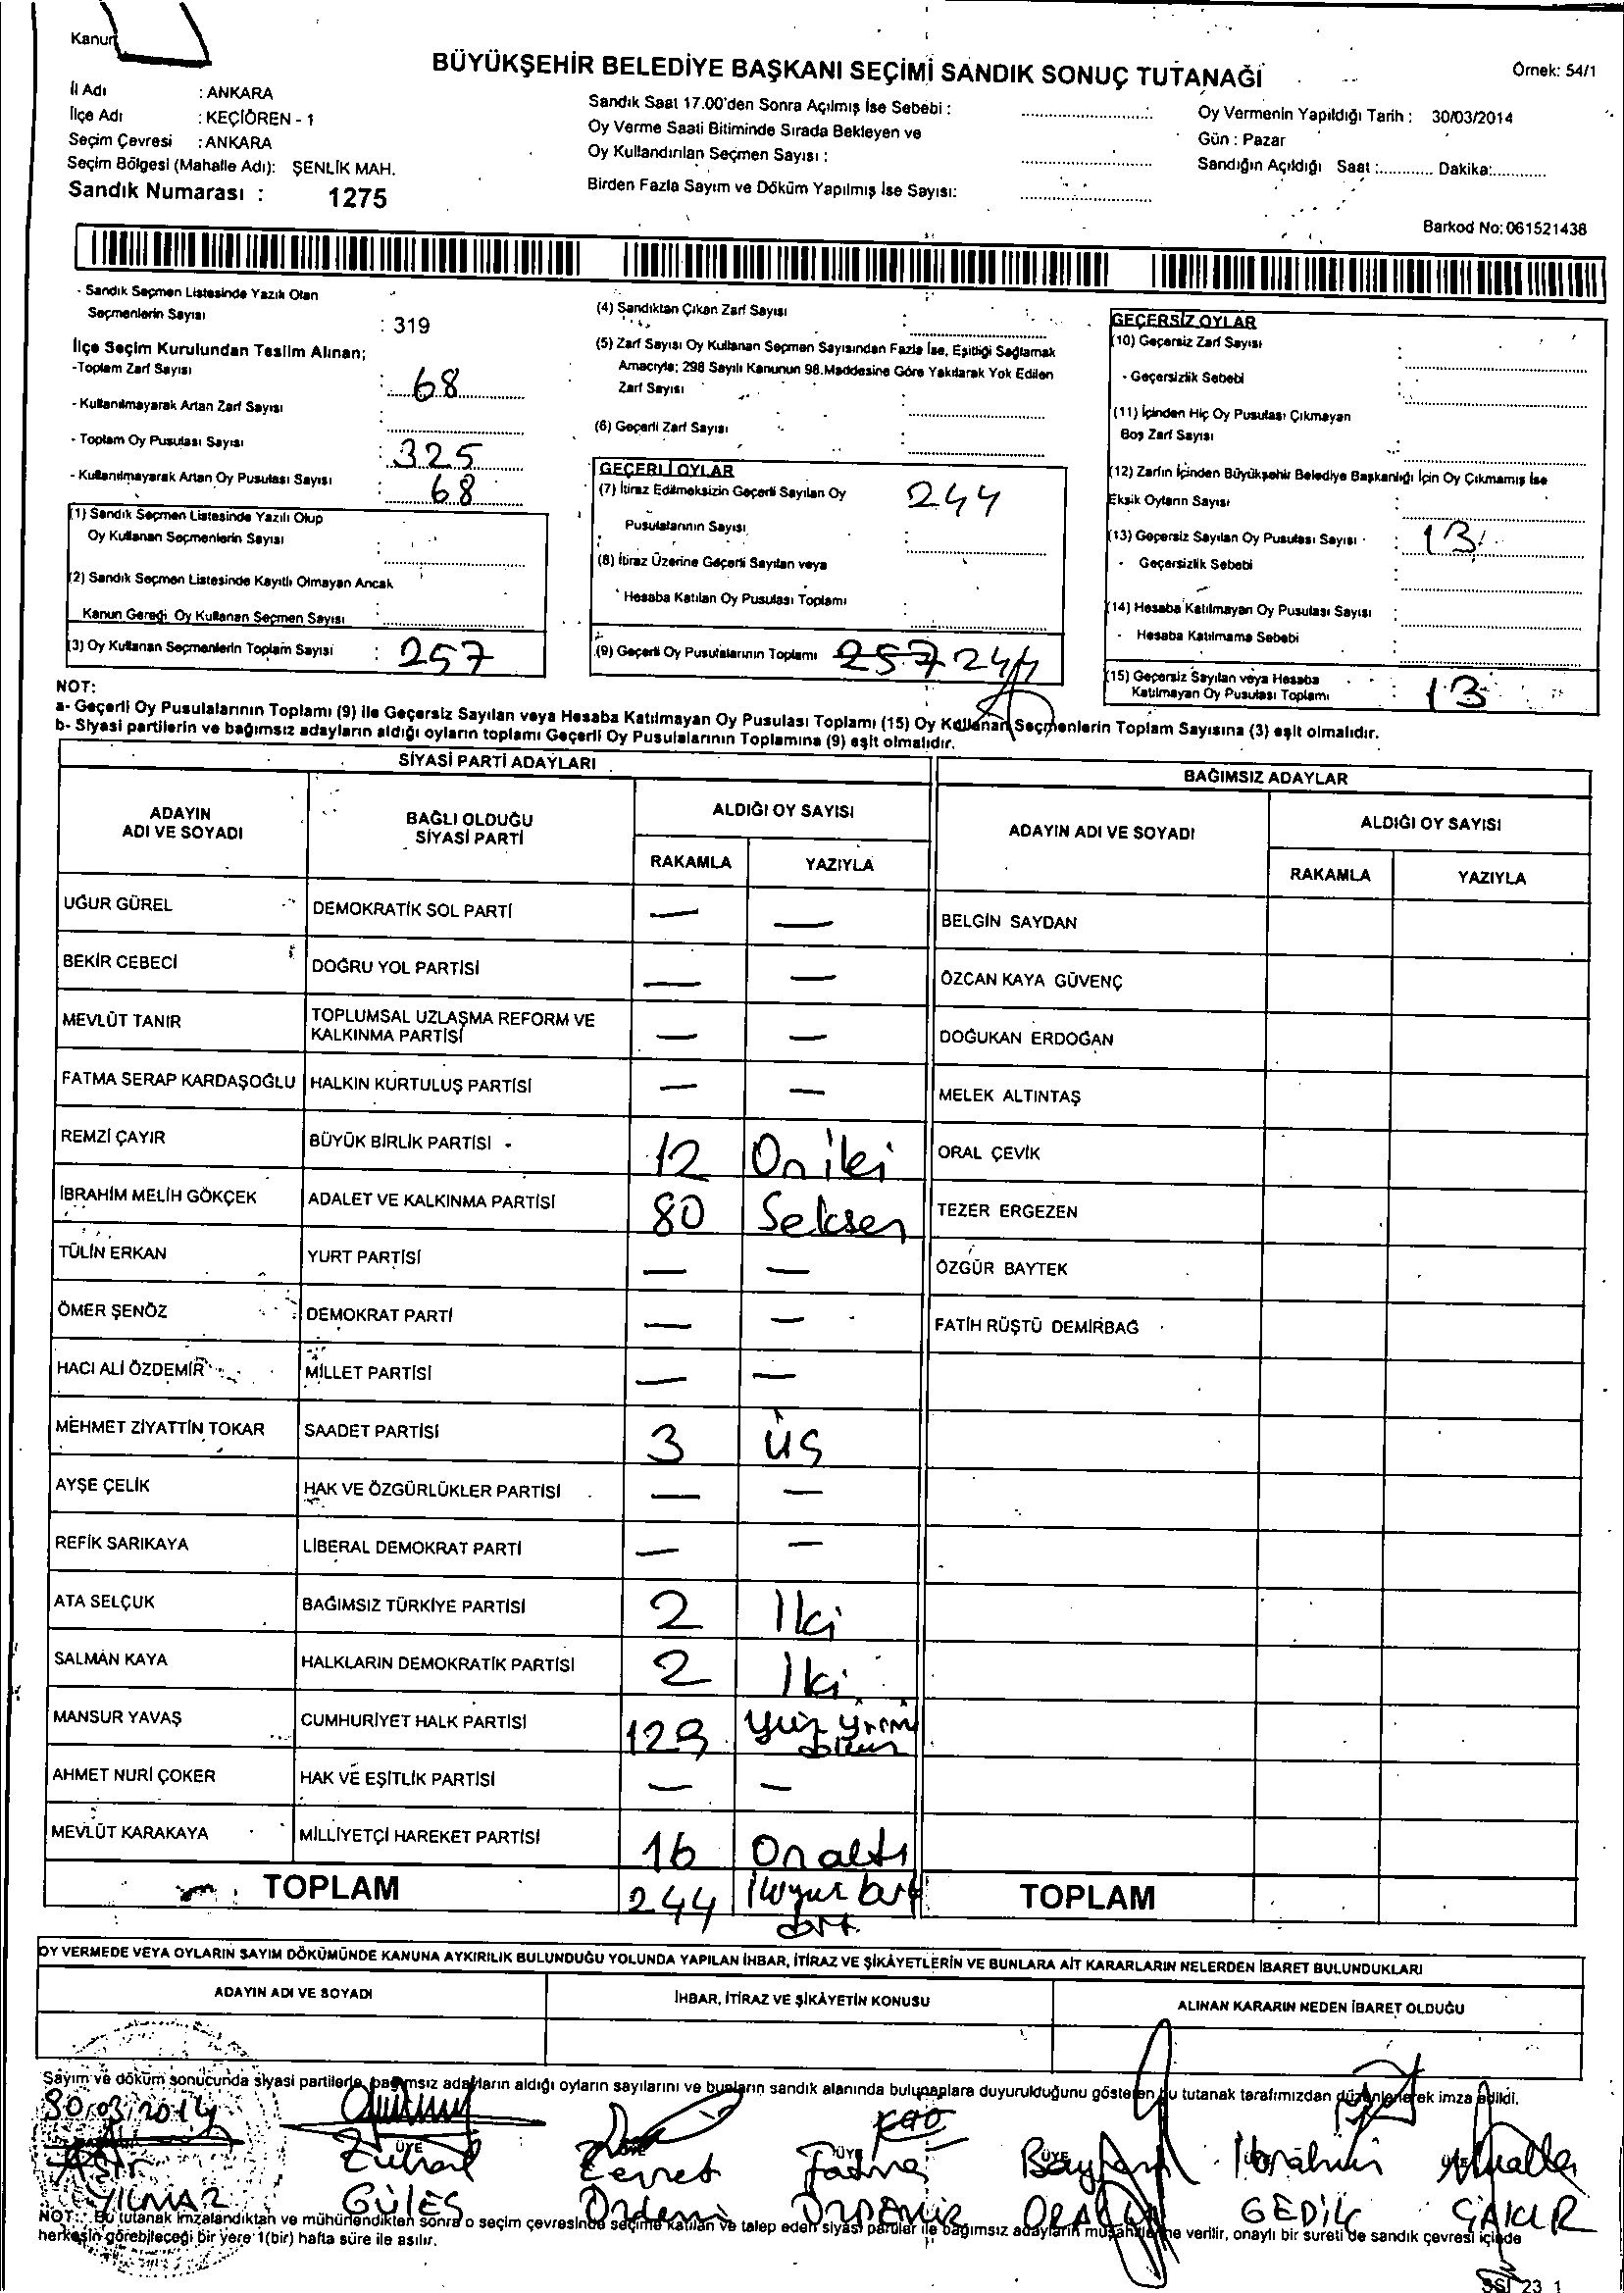 Kanun
BÜYÜKŞEHİR BELEDİYE BAŞKANI SEÇİMİ SANDIK SONUÇ TUTANAĞI
Örnek: 54/1
İl Adı : ANKARA
İlçe Adı : KEÇİÖREN - 1
Seçim Çevresi : ANKARA
Seçim Bölgesi (Mahalle Adı): ŞENLİK MAH.
Sandık Numarası : 1275
Sandık Saat 17.00'den Sonra Açılmış İse Sebebi :
Oy Verme Saati Bitiminde Sırada Bekleyen ve
Oy Kullandırılan Seçmen Sayısı :
Birden Fazla Sayım ve Döküm Yapılmış İse Sayısı:
Oy Vermenin Yapıldığı Tarih : 30/03/2014
Gün : Pazar
Sandığın Açıldığı Saat :............ Dakika:............
Barkod No: 061521438
- Sandık Seçmen Listesinde Yazılı Olan
Seçmenlerin Sayısı : 319
İlçe Seçim Kurulundan Teslim Alınan;
-Toplam Zarf Sayısı : 68
- Kullanılmayarak Artan Zarf Sayısı :
- Toplam Oy Pusulası Sayısı : 325
- Kullanılmayarak Artan Oy Pusulası Sayısı : 68
(1) Sandık Seçmen Listesinde Yazılı Olup
Oy Kullanan Seçmenlerin Sayısı :
(2) Sandık Seçmen Listesinde Kayıtlı Olmayan Ancak
Kanun Gereği Oy Kullanan Seçmen Sayısı :
(3) Oy Kullanan Seçmenlerin Toplam Sayısı : 257
(4) Sandıktan Çıkan Zarf Sayısı :
(5) Zarf Sayısı Oy Kullanan Seçmen Sayısından Fazla İse, Eşitliği Sağlamak
Amacıyla; 298 Sayılı Kanunun 98.Maddesine Göre Yakılarak Yok Edilen
Zarf Sayısı :
(6) Geçerli Zarf Sayısı :
GEÇERLİ OYLAR
(7) İtiraz Edilmeksizin Geçerli Sayılan Oy 244
Pusulalarının Sayısı :
(8) İtiraz Üzerine Geçerli Sayılan veya
Hesaba Katılan Oy Pusulası Toplamı :
(9) Geçerli Oy Pusulalarının Toplamı 257 244
GEÇERSİZ OYLAR
(10) Geçersiz Zarf Sayısı :
- Geçersizlik Sebebi :
(11) İçinden Hiç Oy Pusulası Çıkmayan
Boş Zarf Sayısı :
(12) Zarfın İçinden Büyükşehir Belediye Başkanlığı İçin Oy Çıkmamış İse
Eksik Oyların Sayısı :
(13) Geçersiz Sayılan Oy Pusulası Sayısı : 13
- Geçersizlik Sebebi :
(14) Hesaba Katılmayan Oy Pusulası Sayısı :
- Hesaba Katılmama Sebebi :
(15) Geçersiz Sayılan veya Hesaba
Katılmayan Oy Pusulası Toplamı : 13
NOT:
a- Geçerli Oy Pusulalarının Toplamı (9) ile Geçersiz Sayılan veya Hesaba Katılmayan Oy Pusulası Toplamı (15) Oy Kullanan Seçmenlerin Toplam Sayısına (3) eşit olmalıdır.
b- Siyasi partilerin ve bağımsız adayların aldığı oyların toplamı Geçerli Oy Pusulalarının Toplamına (9) eşit olmalıdır.
SİYASİ PARTİ ADAYLARI
BAĞIMSIZ ADAYLAR
ADAYIN
ADI VE SOYADI
BAĞLI OLDUĞU
SİYASİ PARTİ
ALDIĞI OY SAYISI
RAKAMLA YAZIYLA
ADAYIN ADI VE SOYADI
ALDIĞI OY SAYISI
RAKAMLA YAZIYLA
UĞUR GÜREL DEMOKRATİK SOL PARTİ — — BELGİN SAYDAN
BEKİR CEBECİ DOĞRU YOL PARTİSİ — — ÖZCAN KAYA GÜVENÇ
MEVLÜT TANIR TOPLUMSAL UZLAŞMA REFORM VE
KALKINMA PARTİSİ — — DOĞUKAN ERDOĞAN
FATMA SERAP KARDAŞOĞLU HALKIN KURTULUŞ PARTİSİ — — MELEK ALTINTAŞ
REMZİ ÇAYIR BÜYÜK BİRLİK PARTİSİ 12 On iki ORAL ÇEVİK
İBRAHİM MELİH GÖKÇEK ADALET VE KALKINMA PARTİSİ 80 Seksen TEZER ERGEZEN
TÜLİN ERKAN YURT PARTİSİ — — ÖZGÜR BAYTEK
ÖMER ŞENÖZ DEMOKRAT PARTİ — — FATİH RÜŞTÜ DEMİRBAĞ
HACI ALİ ÖZDEMİR MİLLET PARTİSİ — —
MEHMET ZİYATTİN TOKAR SAADET PARTİSİ 3 üç
AYŞE ÇELİK HAK VE ÖZGÜRLÜKLER PARTİSİ — —
REFİK SARIKAYA LİBERAL DEMOKRAT PARTİ — —
ATA SELÇUK BAĞIMSIZ TÜRKİYE PARTİSİ 2 İki
SALMAN KAYA HALKLARIN DEMOKRATİK PARTİSİ 2 İki
MANSUR YAVAŞ CUMHURİYET HALK PARTİSİ 129 Yüz yirmi
dokuz
AHMET NURİ ÇOKER HAK VE EŞİTLİK PARTİSİ — —
MEVLÜT KARAKAYA MİLLİYETÇİ HAREKET PARTİSİ 16 Onaltı
TOPLAM 244 ikiyüz kırk TOPLAM
dört
OY VERMEDE VEYA OYLARIN SAYIM DÖKÜMÜNDE KANUNA AYKIRILIK BULUNDUĞU YOLUNDA YAPILAN İHBAR, İTİRAZ VE ŞİKÂYETLERİN VE BUNLARA AİT KARARLARIN NELERDEN İBARET BULUNDUKLARI
ADAYIN ADI VE SOYADI İHBAR, İTİRAZ VE ŞİKÂYETİN KONUSU ALINAN KARARIN NEDEN İBARET OLDUĞU
Sayım ve döküm sonucunda siyasi partilerle, bağımsız adayların aldığı oyların sayılarını ve bunların sandık alanında bulunanlara duyurulduğunu gösteren bu tutanak tarafımızdan düzenlenerek imza edildi.
30/03/2014
ÜYE ÜYE ÜYE
Zuhal Fatma İbrahim
YILMAZ GÜLEŞ Özdemir ÖZDEMİR GEDİK ÇAKIR
NOT: Bu tutanak imzalandıktan ve mühürlendikten sonra o seçim çevresinde seçime katılan ve talep eden siyasi partiler ile bağımsız adayların müşahitlerine verilir, onaylı bir sureti de sandık çevresi içinde
herkesin görebileceği bir yere 1(bir) hafta süre ile asılır.
23 1